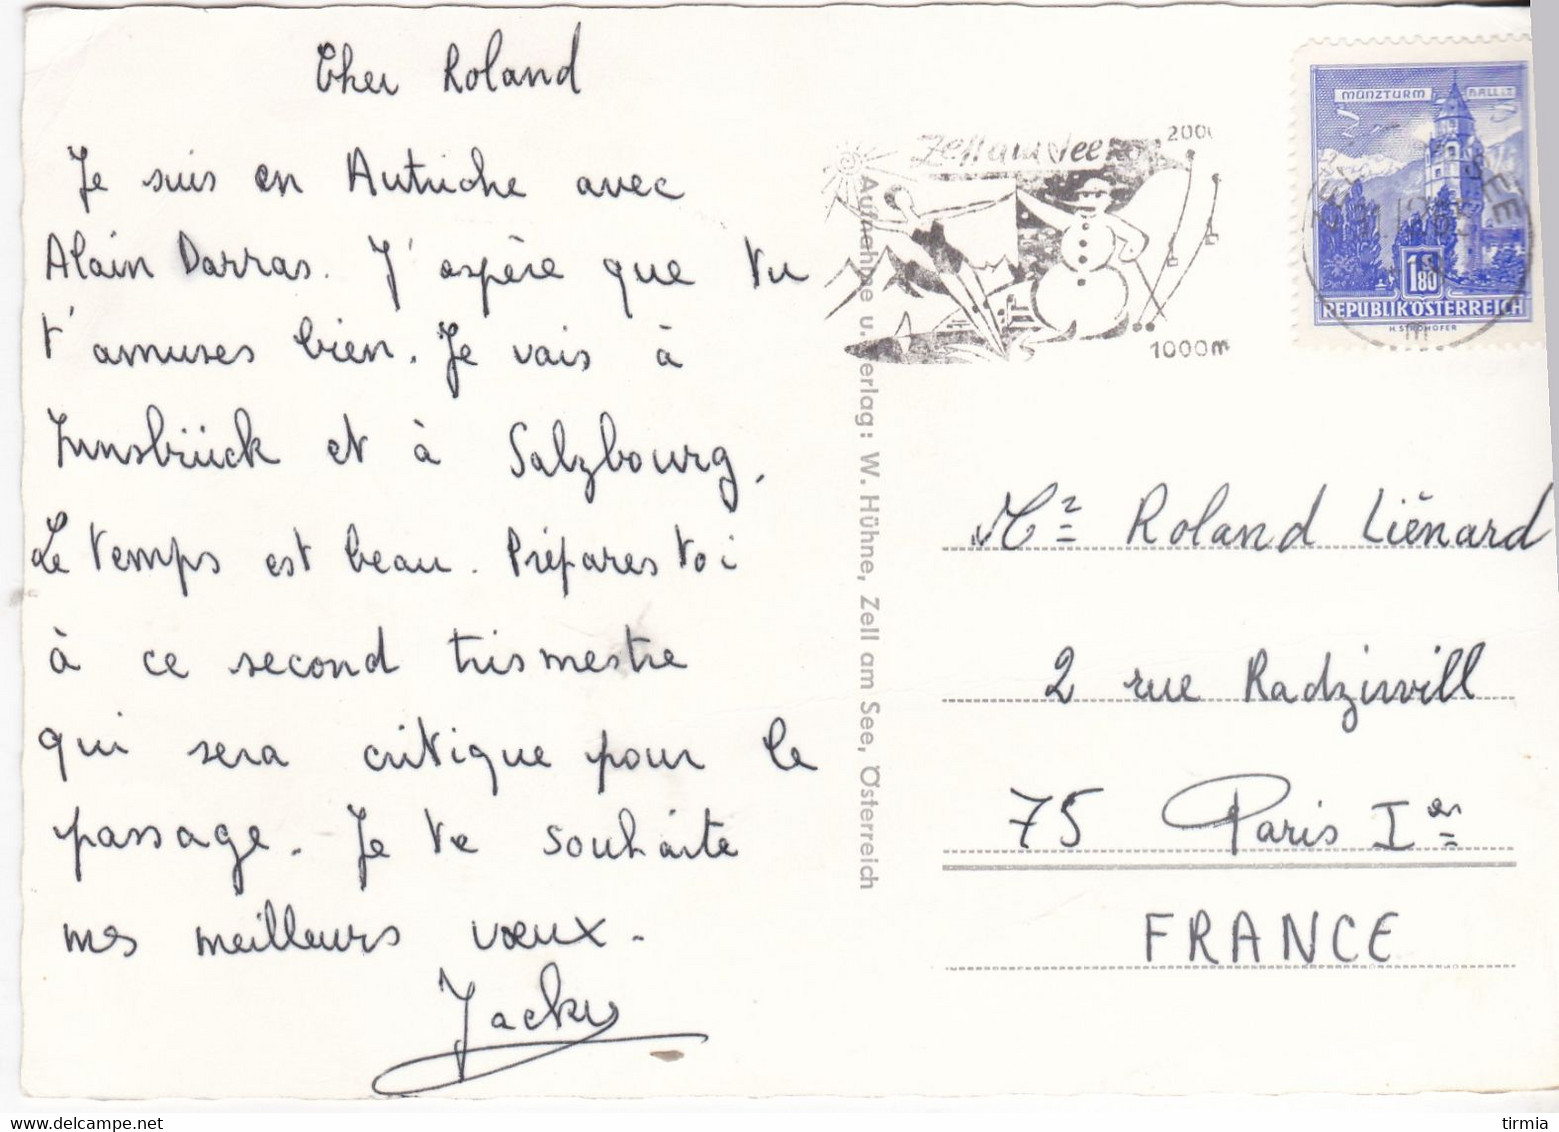 Cher Roland
Je suis en Autriche avec
Alain Darras. J'espère que tu
t'amuses bien. Je vais à
Innsbrück et à Salzbourg.
Le temps est beau. Prépares toi
à ce second trismestre
qui sera critique pour le
passage. Je te souhaite
mes meilleurs vœux.
Jacky
Aufnahme u. Verlag: W. Hühne, Zell am See, Österreich
Zell am See
2000
1000m
MÜNZTURM HALL i.T.
1.80
REPUBLIK ÖSTERREICH
H. STROHOFER
Mr Roland Liénard
2 rue Radziwill
75 Paris Ier
FRANCE
tirmia